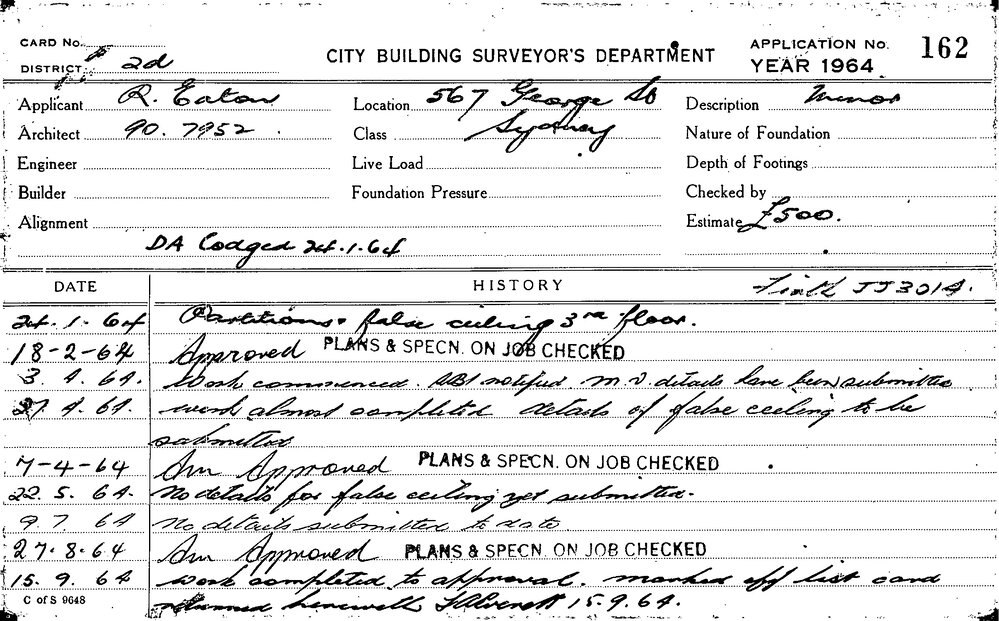 CARD No.
DISTRICT 2d
CITY BUILDING SURVEYOR'S DEPARTMENT
APPLICATION No. 162
YEAR 1964
Applicant R. Eaton
Location 567 George St
Description Minor
Architect 90. 7952
Class Sydney
Nature of Foundation
Engineer
Live Load
Depth of Footings
Builder
Foundation Pressure
Checked by
Alignment
Estimate £500.
DA Lodged 24.1.64
DATE
HISTORY
JJ3014.
24.1.64 Partitions & false ceiling 3rd floor.
18-2-64 Approved PLANS & SPECN. ON JOB CHECKED
3.4.64. Work commenced. notified M.V. details have been submitted
27.4.64. work almost completed details of false ceiling to be
submitted
7-4-64 Am Approved PLANS & SPECN. ON JOB CHECKED
22.5.64. No details for false ceiling yet submitted.
9.7.64 No details submitted to date
27.8.64 Am Approved PLANS & SPECN. ON JOB CHECKED
15.9.64 Work completed to approval. marked off list card
C of S 9648
returned herewith 15.9.64.